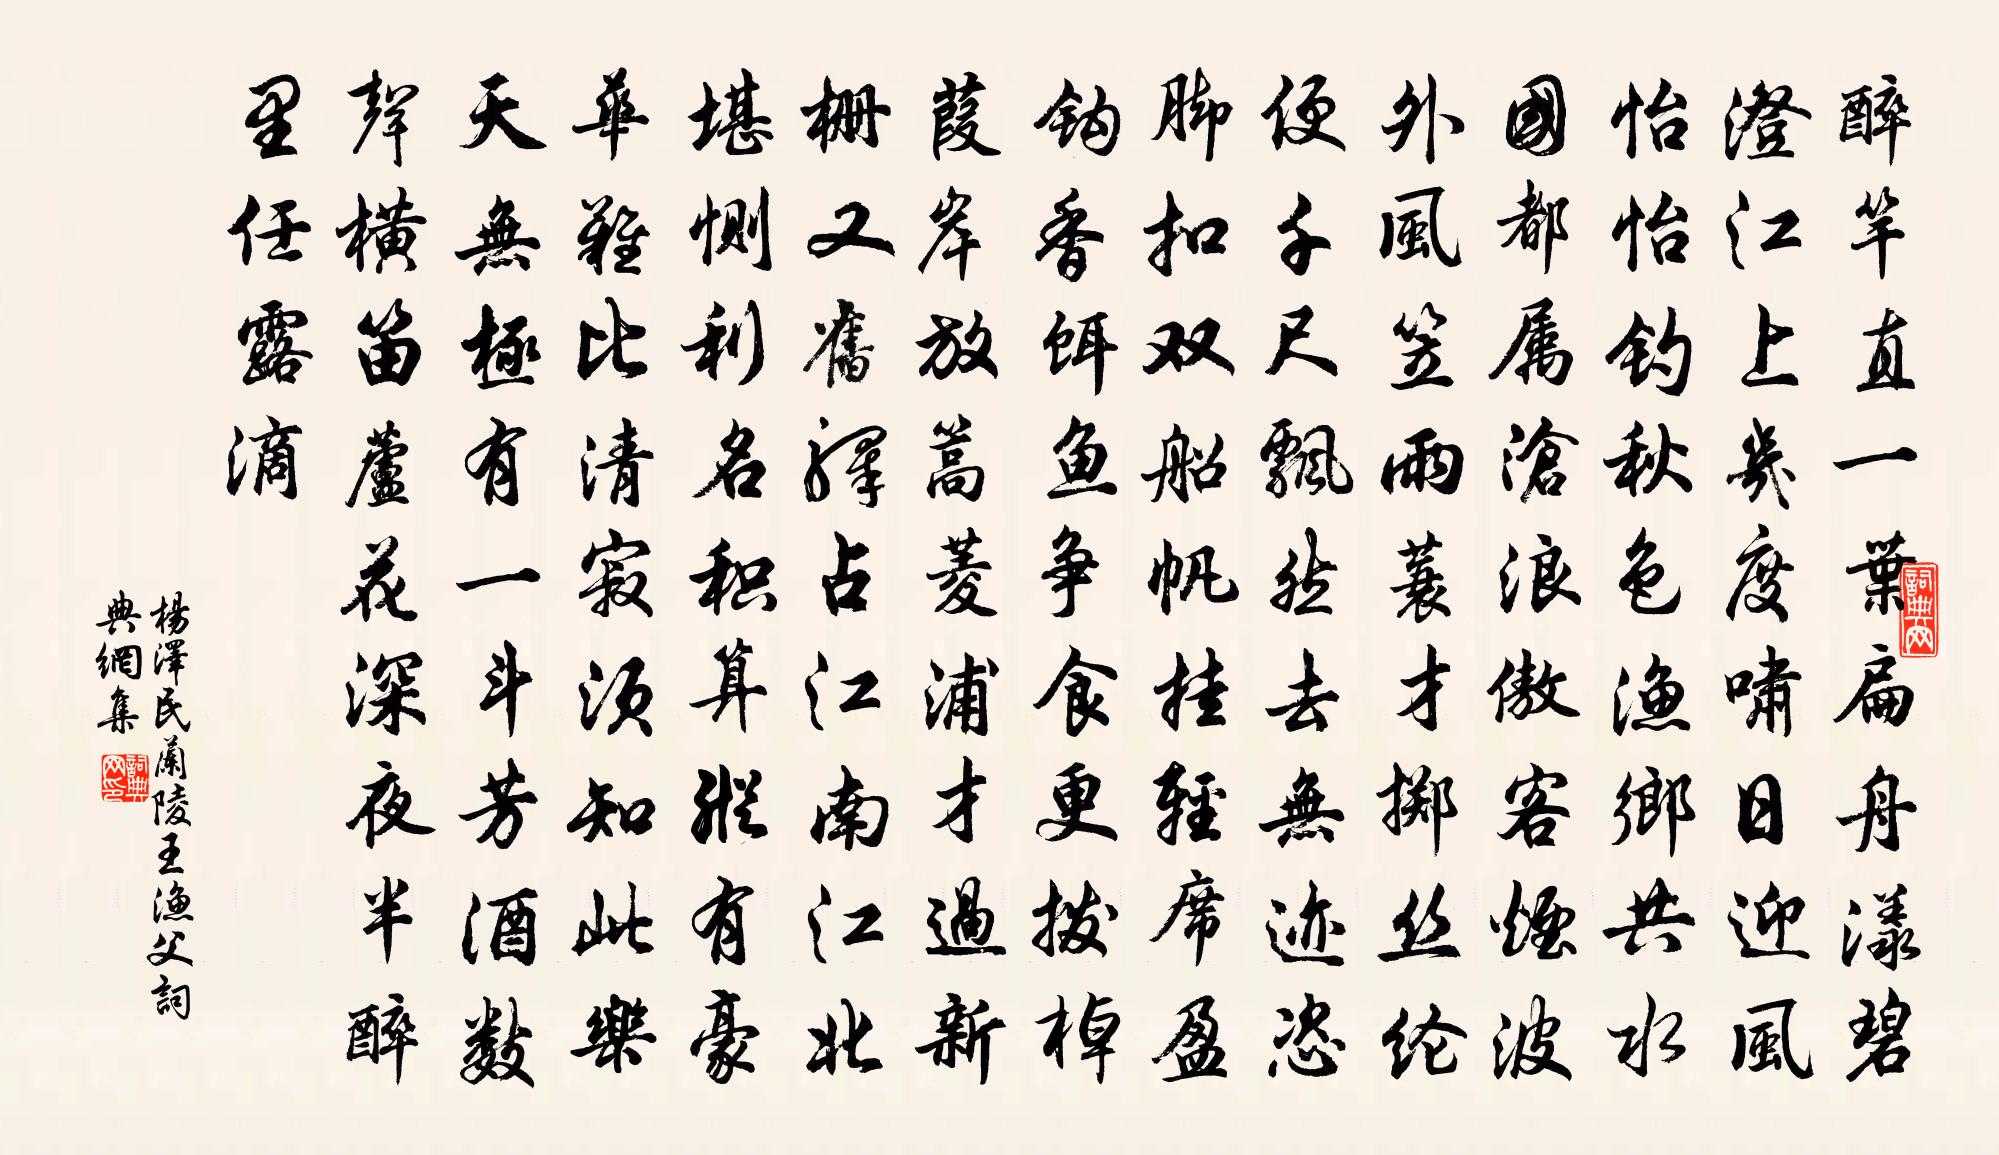 醉竿直一葉扁舟漾碧
澄江上幾度嘯日迎風
怡怡釣秋色漁鄉共水
國都属滄浪傲客煙波
外風笠雨蓑才掷丝纶
便千尺飄然去無迹恣
脚扣双船帆挂輕席盈
鈎香餌魚争食更拨棹
葭岸放篙菱浦才過新
栅又舊驛占江南江北
堪惻利名积算縱有豪
華難比清寂须知此樂
天無極有一斗芳酒數
聲横笛蘆花深夜半醉
里任露滴
楊澤民蘭陵王漁父詞
典網集
詞典网
詞典网印